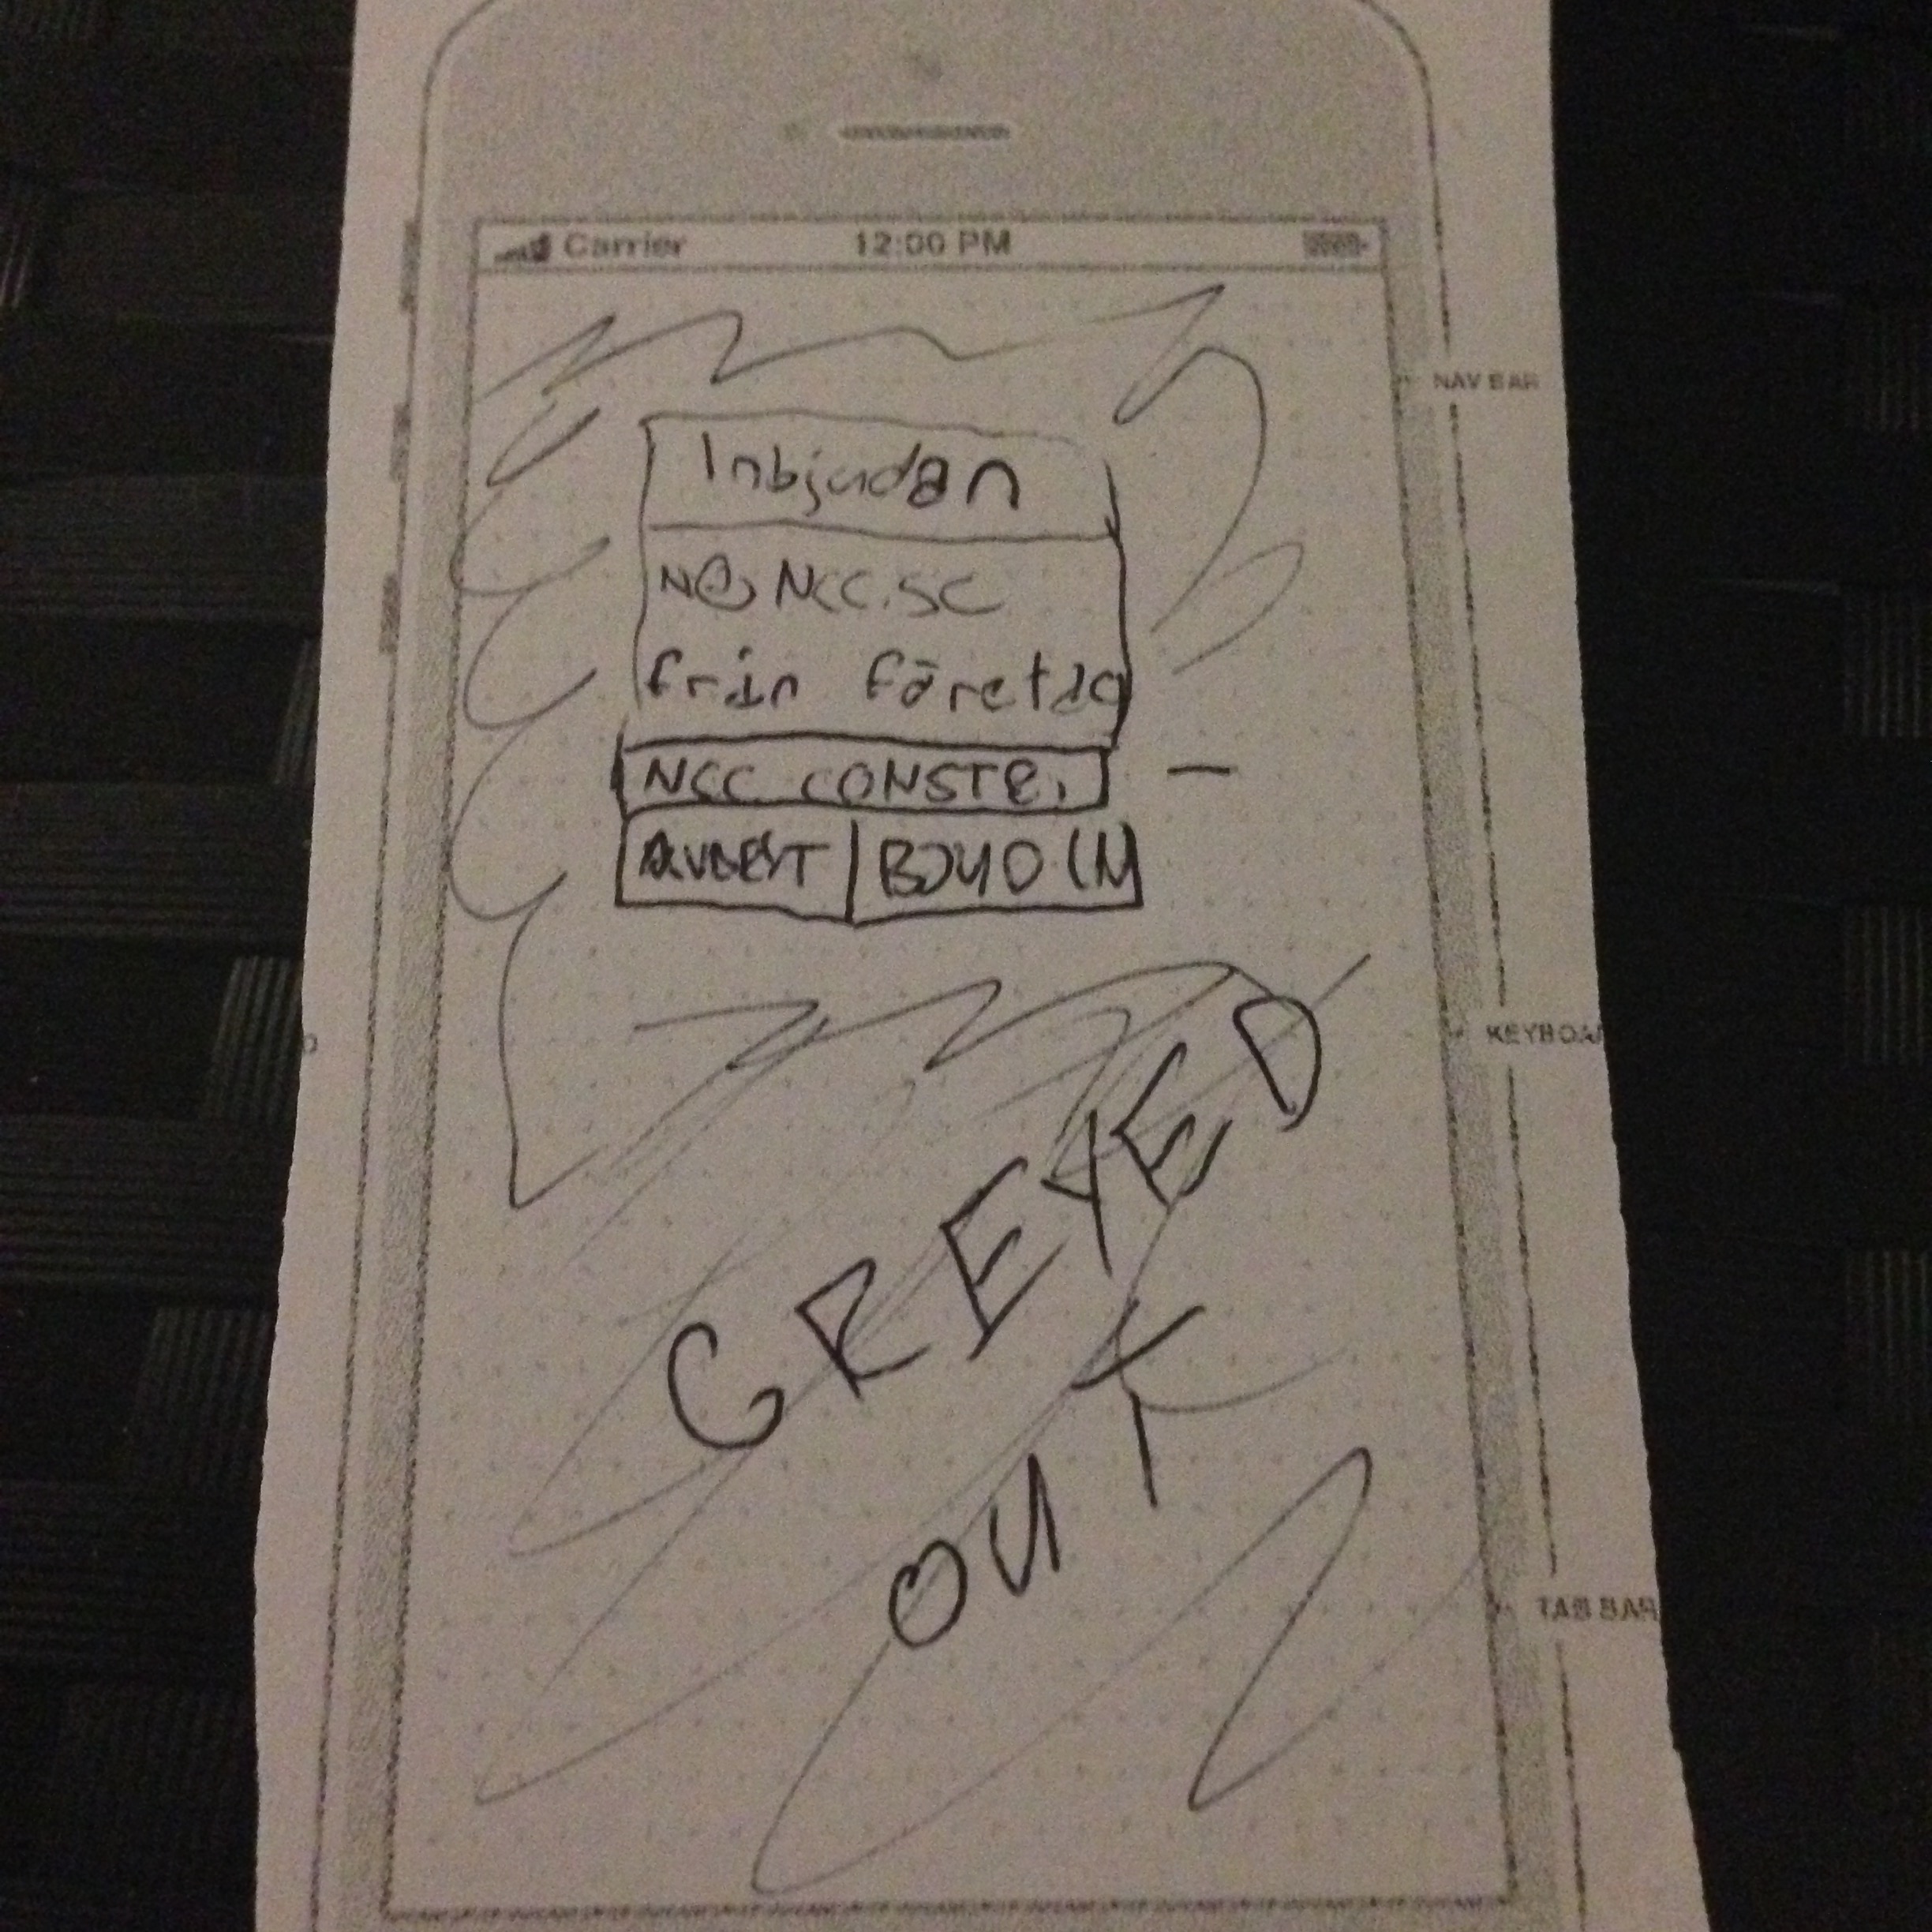 Carrier 12:00 PM
NAV BAR
Inbjudan
N@NCC.SE
från företag
NCC CONSTR.
AVBRYT BJUD IN
KEYBOA
GREYED
OUT
TAB BAR